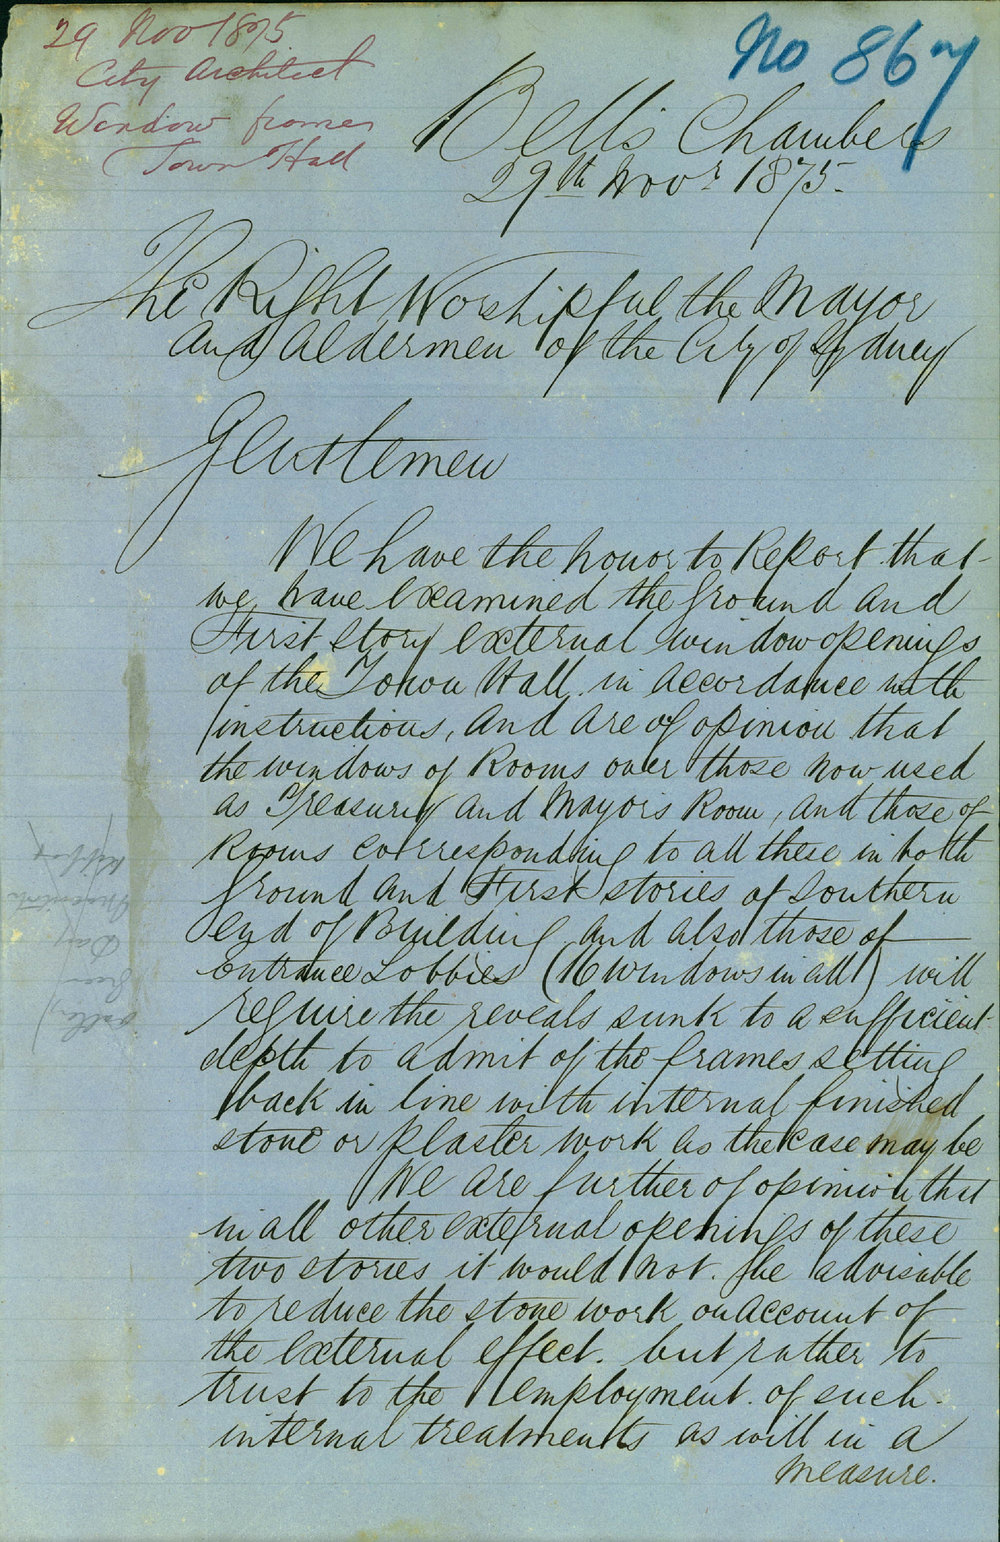 29 Nov 1875
City Architect
Window frames
Town Hall
No 867
Bells Chambers
29th Novr 1875.
The Right Worshipful the Mayor
and Aldermen of the City of Sydney
Gentlemen
We have the honor to Report that
we have Examined the Ground and
First Story external window openings
of the Town Hall in accordance with
instructions, and are of opinion that
the windows of Rooms over those now used
as Treasury and Mayors Room, and those of
Rooms corresponding to all these in both
Ground and First stories of Southern
end of Building and also those of
Entrance Lobbies (16 windows in all) will
require the reveals sunk to a sufficient
depth to admit of the frames setting
back in line with internal finished
stone or plaster work as the case may be
We are further of opinion that
in all other external openings of these
two stories it would not be advisable
to reduce the stone work on account of
the External effect. but rather to
trust to the employment of such
internal treatments as will in a
measure.